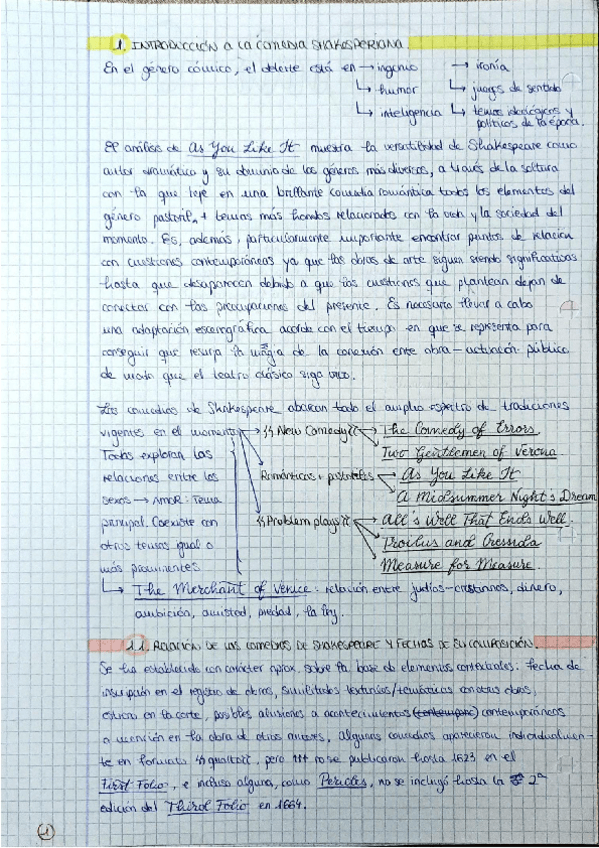 1. INTRODUCCIÓN A LA COMEDIA SHAKESPERIANA.
En el género cómico, el deleite está en → ingenio → ironía
↳ humor ↳ juegos de sentido
↳ inteligencia ↳ temas ideológicos y
políticos de la época.
El análisis de As You Like It muestra la versatilidad de Shakespeare como
autor dramático y su dominio de los géneros más diversos, a través de la soltura
con la que teje en una brillante comedia romántica todos los elementos del
género pastoril, + temas más hondos relacionados con la vida y la sociedad del
momento. Es, además, particularmente importante encontrar puntos de relación
con cuestiones contemporáneas ya que las obras de arte siguen siendo significativas
hasta que desaparecen debido a que las cuestiones que plantean dejan de
conectar con las preocupaciones del presente. Es necesario llevar a cabo
una adaptación escenográfica acorde con el tiempo en que se representa para
conseguir que resurja la magia de la conexión entre obra - actuación público
de modo que el teatro clásico siga vivo.
Las comedias de Shakespeare abarcan todo el amplio espectro de tradiciones
vigentes en el momento → "New Comedy" → The Comedy of Errors
Two Gentlemen of Verona
Todas exploran las
relaciones entre los Románticas + pastoriles → As You Like It
sexos → AMOR: Tema A Midsummer Night's Dream
principal. Coexiste con "Problem plays" → All's Well That Ends Well.
otros temas igual o Troilus and Cressida
más prominentes Measure for Measure
↳ The Merchant of Venice: relación entre judíos-cristianos, dinero,
ambición, amistad, piedad, la ley.
1.1. RELACIÓN DE LAS COMEDIAS DE SHAKESPEARE Y FECHAS DE SU COMPOSICIÓN.
Se ha establecido con carácter aprox. sobre la base de elementos contextuales: fecha de
inscripción en el registro de obras, similitudes textuales/temáticas con otras obras,
estreno en la corte, posibles alusiones a acontecimientos contemporáneos
o mención en la obra de otros autores, algunas comedias aparecieron individualmen-
te en formato "quarto", pero no se publicaron hasta 1623 en el
First Folio, e incluso alguna, como Pericles, no se incluyó hasta la 2ª
edición del Third Folio en 1664.
1